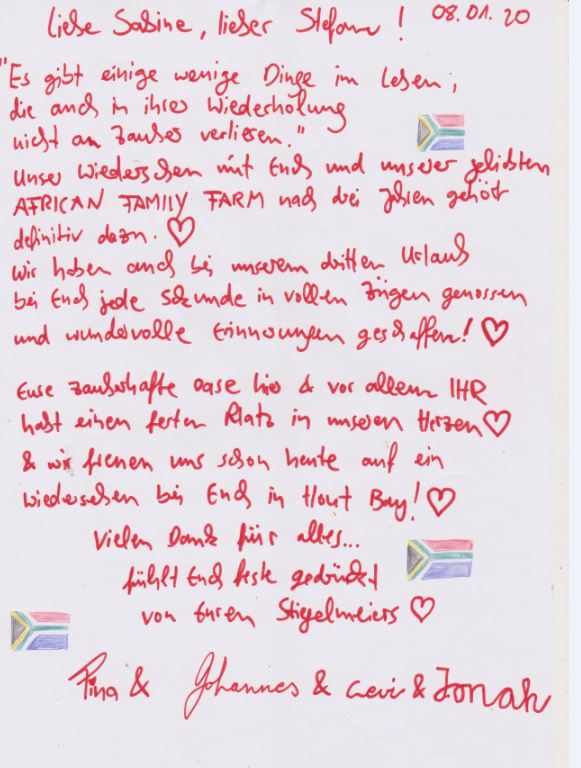 Liebe Sabine, lieber Stefan! 08.01.20
"Es gibt einige wenige Dinge im Leben,
die auch in ihrer Wiederholung
nicht an Zauber verlieren."
Unser Wiedersehen mit Euch und unserer geliebten
AFRICAN FAMILY FARM nach drei Jahren gehört
definitiv dazu. ♡
Wir haben auch bei unserem dritten Urlaub
bei Euch jede Sekunde in vollen Zügen genossen
und wundervolle Erinnerungen geschaffen! ♡
Eure zauberhafte Oase hier & vor allem IHR
habt einen festen Platz in unseren Herzen ♡
& wir freuen uns schon heute auf ein
Wiedersehen bei Euch in Hout Bay! ♡
Vielen Dank für alles...
fühlt Euch feste gedrückt
von Euren Stigelmeiers ♡
Pina & Johannes & Levi & Jonah